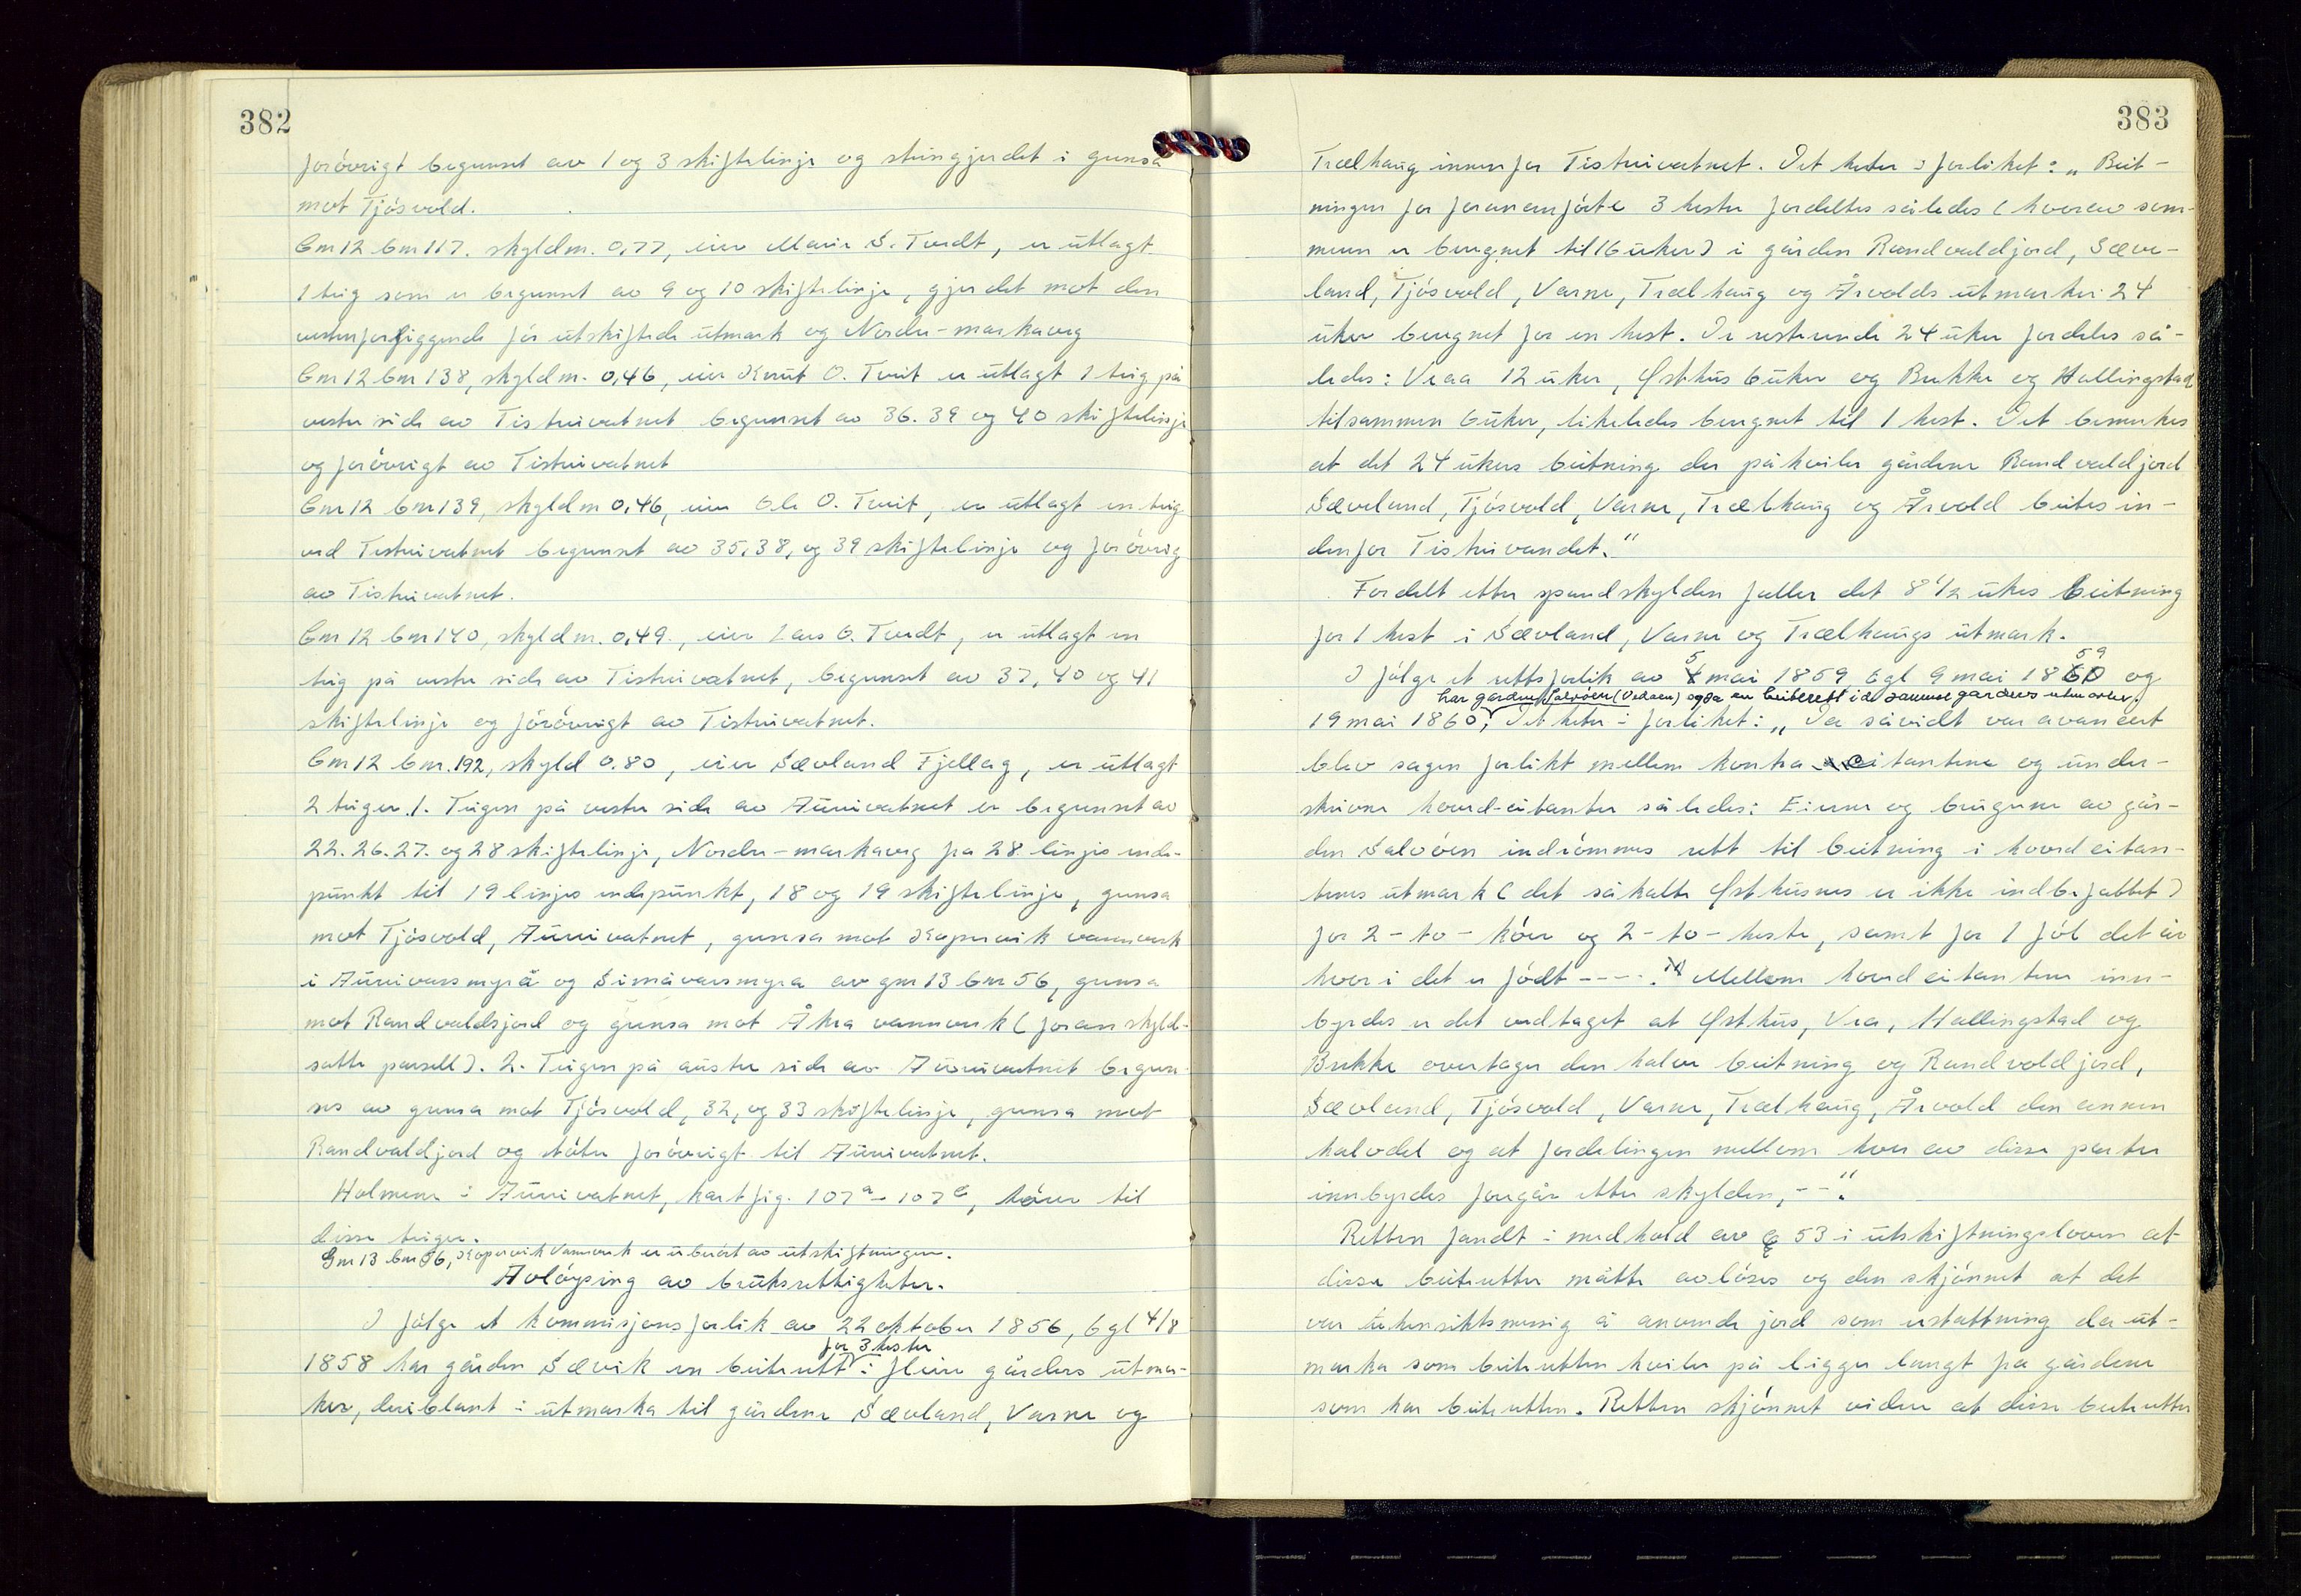 382
forövrigt begrenset av 1 og 3 skiftelinje og steingjerdet i grensa
mot Tjösvold.
Gnr 12 bnr 117. skyldm. 0,77, eier Marie S. Tvedt, er utlagt
1 teig som er begrenset av 9 og 10 skiftelinje, gjerdet mot den
vestenforliggende för utskiftede utmark og Nordre-markaveg
Gnr 12 bnr 138, skyldm. 0,46, eier Knut O. Tveit er utlagt 1 teig på
vestre side av Tistreivatnet begrenset av 36. 39 og 40 skiftelinje
og forövrigt av Tistreivatnet
Gnr 12 bnr 139, skyldm 0,46, eier Ole O. Tveit, er utlagt en teig
ved Tistreivatnet begrenset av 35, 38, og 39 skiftelinje og forövrig
av Tistreivatnet.
Gnr 12 bnr 140, skyldm. 0,49., eier Lars O. Tvedt, er utlagt en
teig på vestre side av Tistreivatnet, begrenset av 37, 40 og 41
skiftelinje og forövrigt av Tistreivatnet.
Gnr 12 bnr. 192, skyld 0.80, eier Sævland Fjellag, er utlagt
2 teiger. 1. Teigen på vestre side av begrenset av
22. 26. 27. og 28 skiftelinje, Nordre-markaveg fra 28 linjes ende-
punkt til 19 linjes endepunkt, 18 og 19 skiftelinje, grensa
mot Tjösvold, grensa mot Kopervik vannverk
i og Simavarsmyra av gnr 13 bnr 56, grensa
mot Randvaldsjord og grensa mot Åkra vannverk (foran skyld-
satte parsell). 2. Teigen på austre side av begren-
ses av grensa mot Tjösvold, 32, og 33 skiftelinje, grensa mot
Randvaldjord og stöter forövrigt til
Holmene i kartfig. 107ᵃ - 107ᵉ, hörer til
disse teiger.
Gnr 13 bnr 56, Kopervik Vannverk er uberört av utskiftningen.
Avlöysing av bruksrettigheter.
I fölge et kommisjonsforlik av 22 oktober 1856, tgl 4/8
for 3 hester
1858 har gården Sævik en beiterett i fleire gårders utmar-
ker, deriblant i utmarka til gårdene Sævland, Varne og
383
Trælhaug innenfor Tistreivatnet. Det heter i forliket: „Beit-
ningen for foranemförte 3 hester fordeltes således (hvorav som-
meren er beregnet til 16 uker) i gården Randvaldjord, Sæve-
land, Tjösvold, Varne, Trælhaug og Årvolds utmarker 24
uker beregnet for en hest. De resterende 24 uker fordeles så-
ledes: Vraa 12 uker, Østhus 6 uker og Brekke og Hallingstad
tilsammen 6 uker, likeledes beregnet til 1 hest. Det bemerkes
at det 24 ukers beitning der påhviler gårdene Randvaldjord
Sæveland, Tjösvold, Varne, Trælhaug og Årvold beites in-
denfor Tistreivandet."
Fordelt etter spandskylden faller det 8 1/2 ukes beitning
for 1 hest i Sævland, Varne og Trælhaugs utmark.
I fölge et rettsforlik av 5 mai 1859, tgl 9 mai 1859 og
har gården Salvöen (Vedöen) også en beiterett i de samme gårders utmarker.
19 mai 1860, Det heter i forliket: „Da såvidt var avanceret
blev sagen forlikt mellem kontra citantene og under-
skrevne hoved-citanter således: Eierne og brugerne av går-
den Salvöen indrömmes rett til beitning i hovedcitan-
tenes utmark (det såkalte Østhusnes er ikke indbefattet)
for 2 - to - köer og 2 - to - heste, samt for 1 föl det år
hvori det er födt ----." Mellem hovedcitantene inn-
byrdes er det vedtaget at Østhus, Vra, Hallingstad og
Brekke overtager den halve beitning og Randvoldjord,
Sævland, Tjösvold, Varne, Trælhaug, Årvold den annen
halvdel og at fordelingen mellem hver av disse parter
innbyrdes foregår etter skylden, --."
Retten fandt i medhold av § 53 i utskiftningsloven at
disse beiteretter måtte avlöses og den skjönnet at det
var uhensiktsmessig å anvende jord som erstattning da ut-
marka som beiteretten hviler på ligger langt fra gårdene
som har beiteretten. Retten skjönnet videre at disse beiteretter